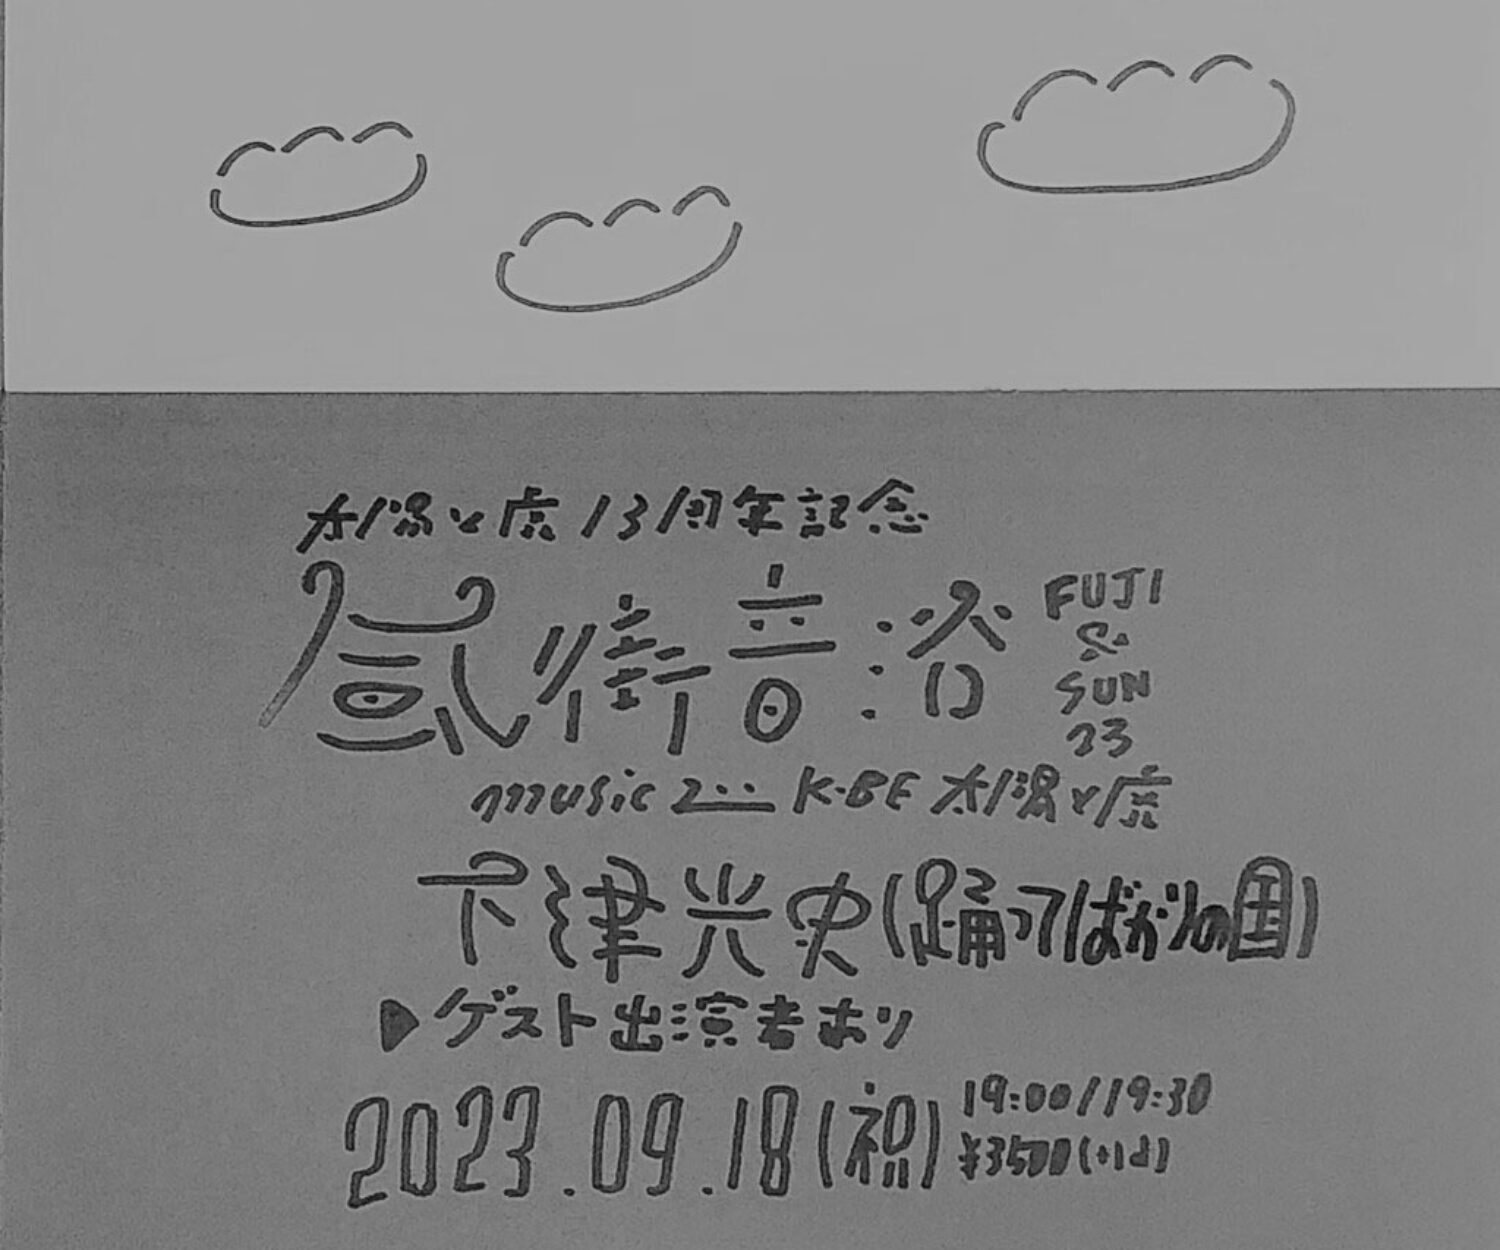 太陽と虎13周年記念
音浴
FUJI
&
SUN
23
music zoo KOBE 太陽と虎
下津光史(踊ってばかりの国)
▶ゲスト出演者あり
2023.09.18(祝)
19:00//19:30
¥3500(+1d)